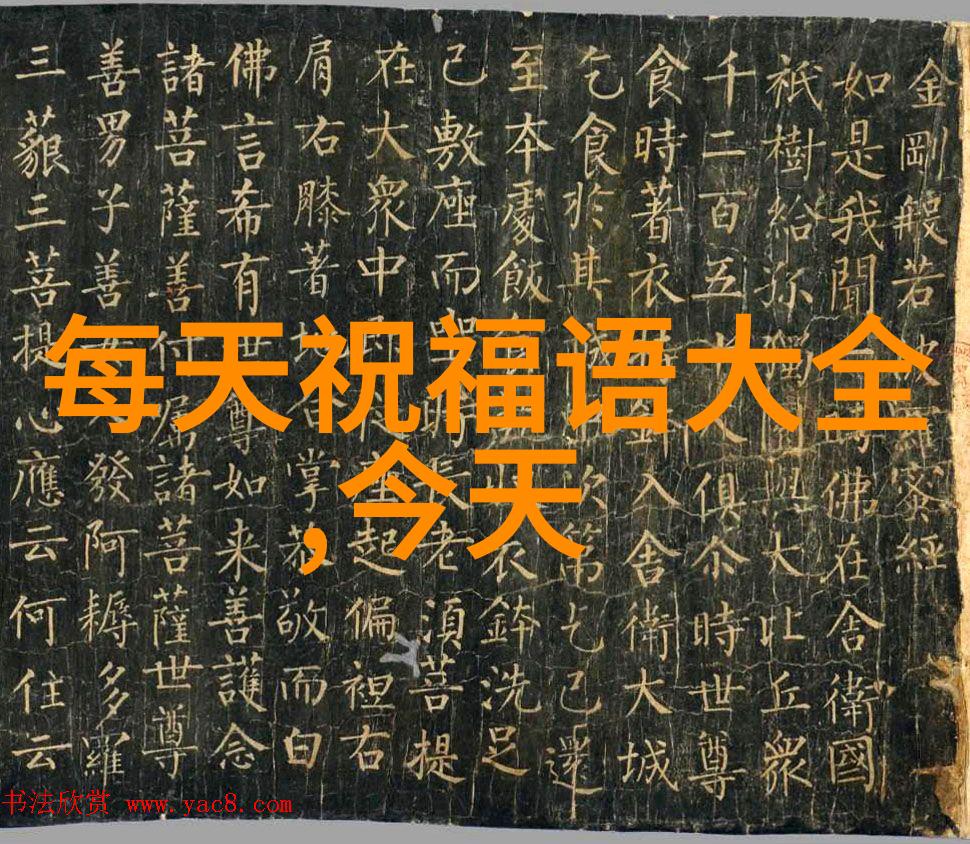 每天祝福语大全
,今天
金剛般若波羅蜜經
如是我聞時佛在舍衛國
祇樹給孤獨園與大比丘衆
千二百五十人俱尒時世尊
食時著衣入舍衛大城
乞食於其次第乞已還
至本處飯食衣鉢洗足
已敷座而坐時長老須菩提
在大衆中起偏袒右
肩右膝著地掌恭敬而白
佛言希有世尊如来善護念
諸菩薩善付属諸菩薩世尊
善男子善發阿耨多羅
三藐三菩提心應云何住云
书法欣赏 www.yac8.com